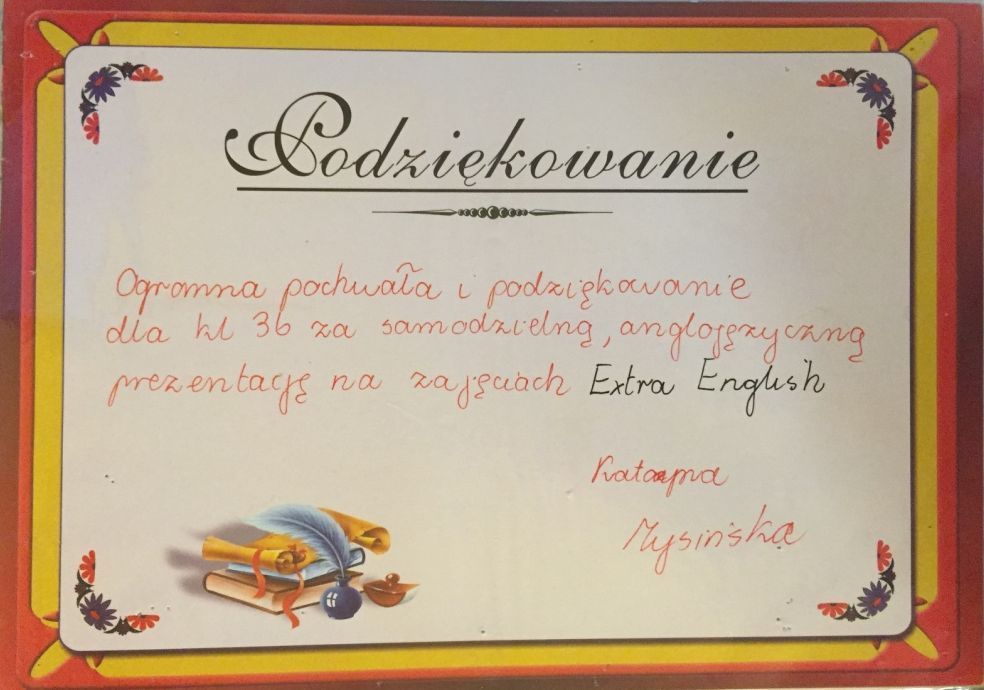 Podziękowanie
Ogromna pochwała i podziękowanie
dla kl 3b za samodzielną, anglojęzyczną
prezentację na zajęciach Extra English
Katarzyna
Mysińska